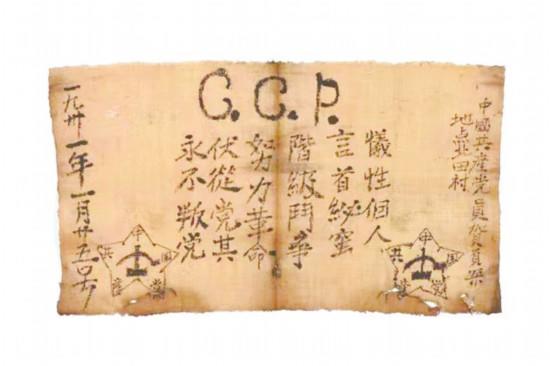 C.C.P.
中國共産党員賀頁朶
地点北田村
犧性個人
言首秘蜜
階級鬥争
努力革命
伏從党其
永不叛党
一九卅一年一月廿五号
中国共産党
中国共産党